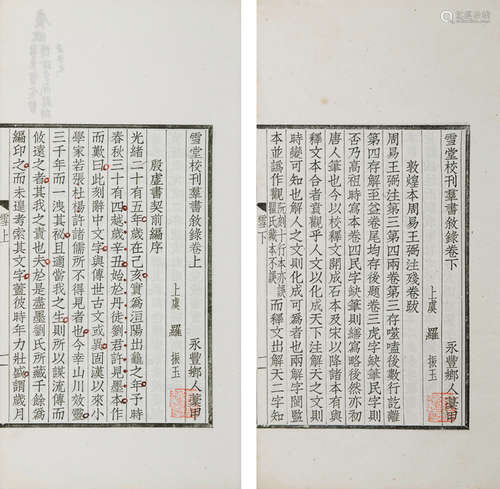 雪堂校刊羣書敘錄卷上
永豐鄉人藁甲
上虞 羅 振玉
殷虛書契前編序
光緒二十有五年歲在己亥實爲洹陽出龜之年予時
春秋三十有四越歲辛丑始於丹徒劉君許見墨本作
而歎曰此刻辭中文字與傳世古文或異固漢以來小
學家若張杜楊許諸儒所不得見者也今幸山川效靈
三千年而一洩其秘且適當我之生則所以謀流傳而
攸遠之者其我之責也夫於是盡墨劉氏所藏千餘爲
編印之而未遑考索其文字蓋彼時年力壯盛謂歲月
雪上
雪堂校刊羣書敘錄卷下
永豐鄉人藁甲
上虞 羅 振玉
敦煌本周易王弼注殘卷跋
周易王弼注第三第四兩卷第三存噬嗑後數行訖離
第四存解至益卷尾均存後題卷三虎字缺筆民字則
否乃高祖時寫本卷四民字缺筆則繕寫略後然亦初
唐人筆也今以校釋文開成石本及宋以降諸本有與
釋文本合者賁觀乎人文以化成天下注解天之文則
時變可知也解人之文則化成可爲者也兩解字閩監
本並譌作觀而釋文出解天之一字知
雪下